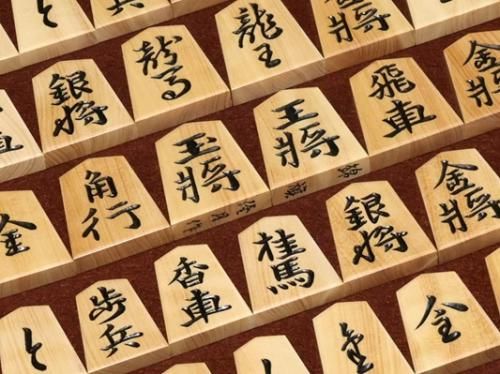 歩兵
銀将
龍馬
龍王
角行
王将
王将
飛車
金将
と
歩兵
香車
桂馬
銀将
金将
全